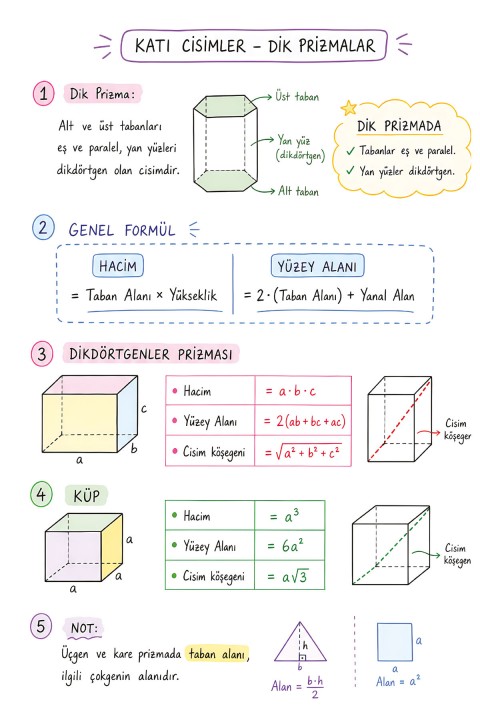 KATI CİSİMLER – DİK PRİZMALAR
1 Dik Prizma:
Alt ve üst tabanları
eş ve paralel, yan yüzleri
dikdörtgen olan cisimdir.
Üst taban
Yan yüz
(dikdörtgen)
Alt taban
DİK PRİZMADA
✓ Tabanlar eş ve paralel.
✓ Yan yüzler dikdörtgen.
2 GENEL FORMÜL
HACİM
= Taban Alanı × Yükseklik
YÜZEY ALANI
= 2·(Taban Alanı) + Yanal Alan
3 DİKDÖRTGENLER PRİZMASI
c
b
a
• Hacim = a·b·c
• Yüzey Alanı = 2(ab+bc+ac)
• Cisim köşegeni = √a²+b²+c²
Cisim
köşeger
4 KÜP
a
a
a
• Hacim = a³
• Yüzey Alanı = 6a²
• Cisim köşegeni = a√3
Cisim
köşegen
5 NOT:
Üçgen ve kare prizmada taban alanı,
ilgili çokgenin alanıdır.
h
b
Alan = b·h/2
a
a
Alan = a²